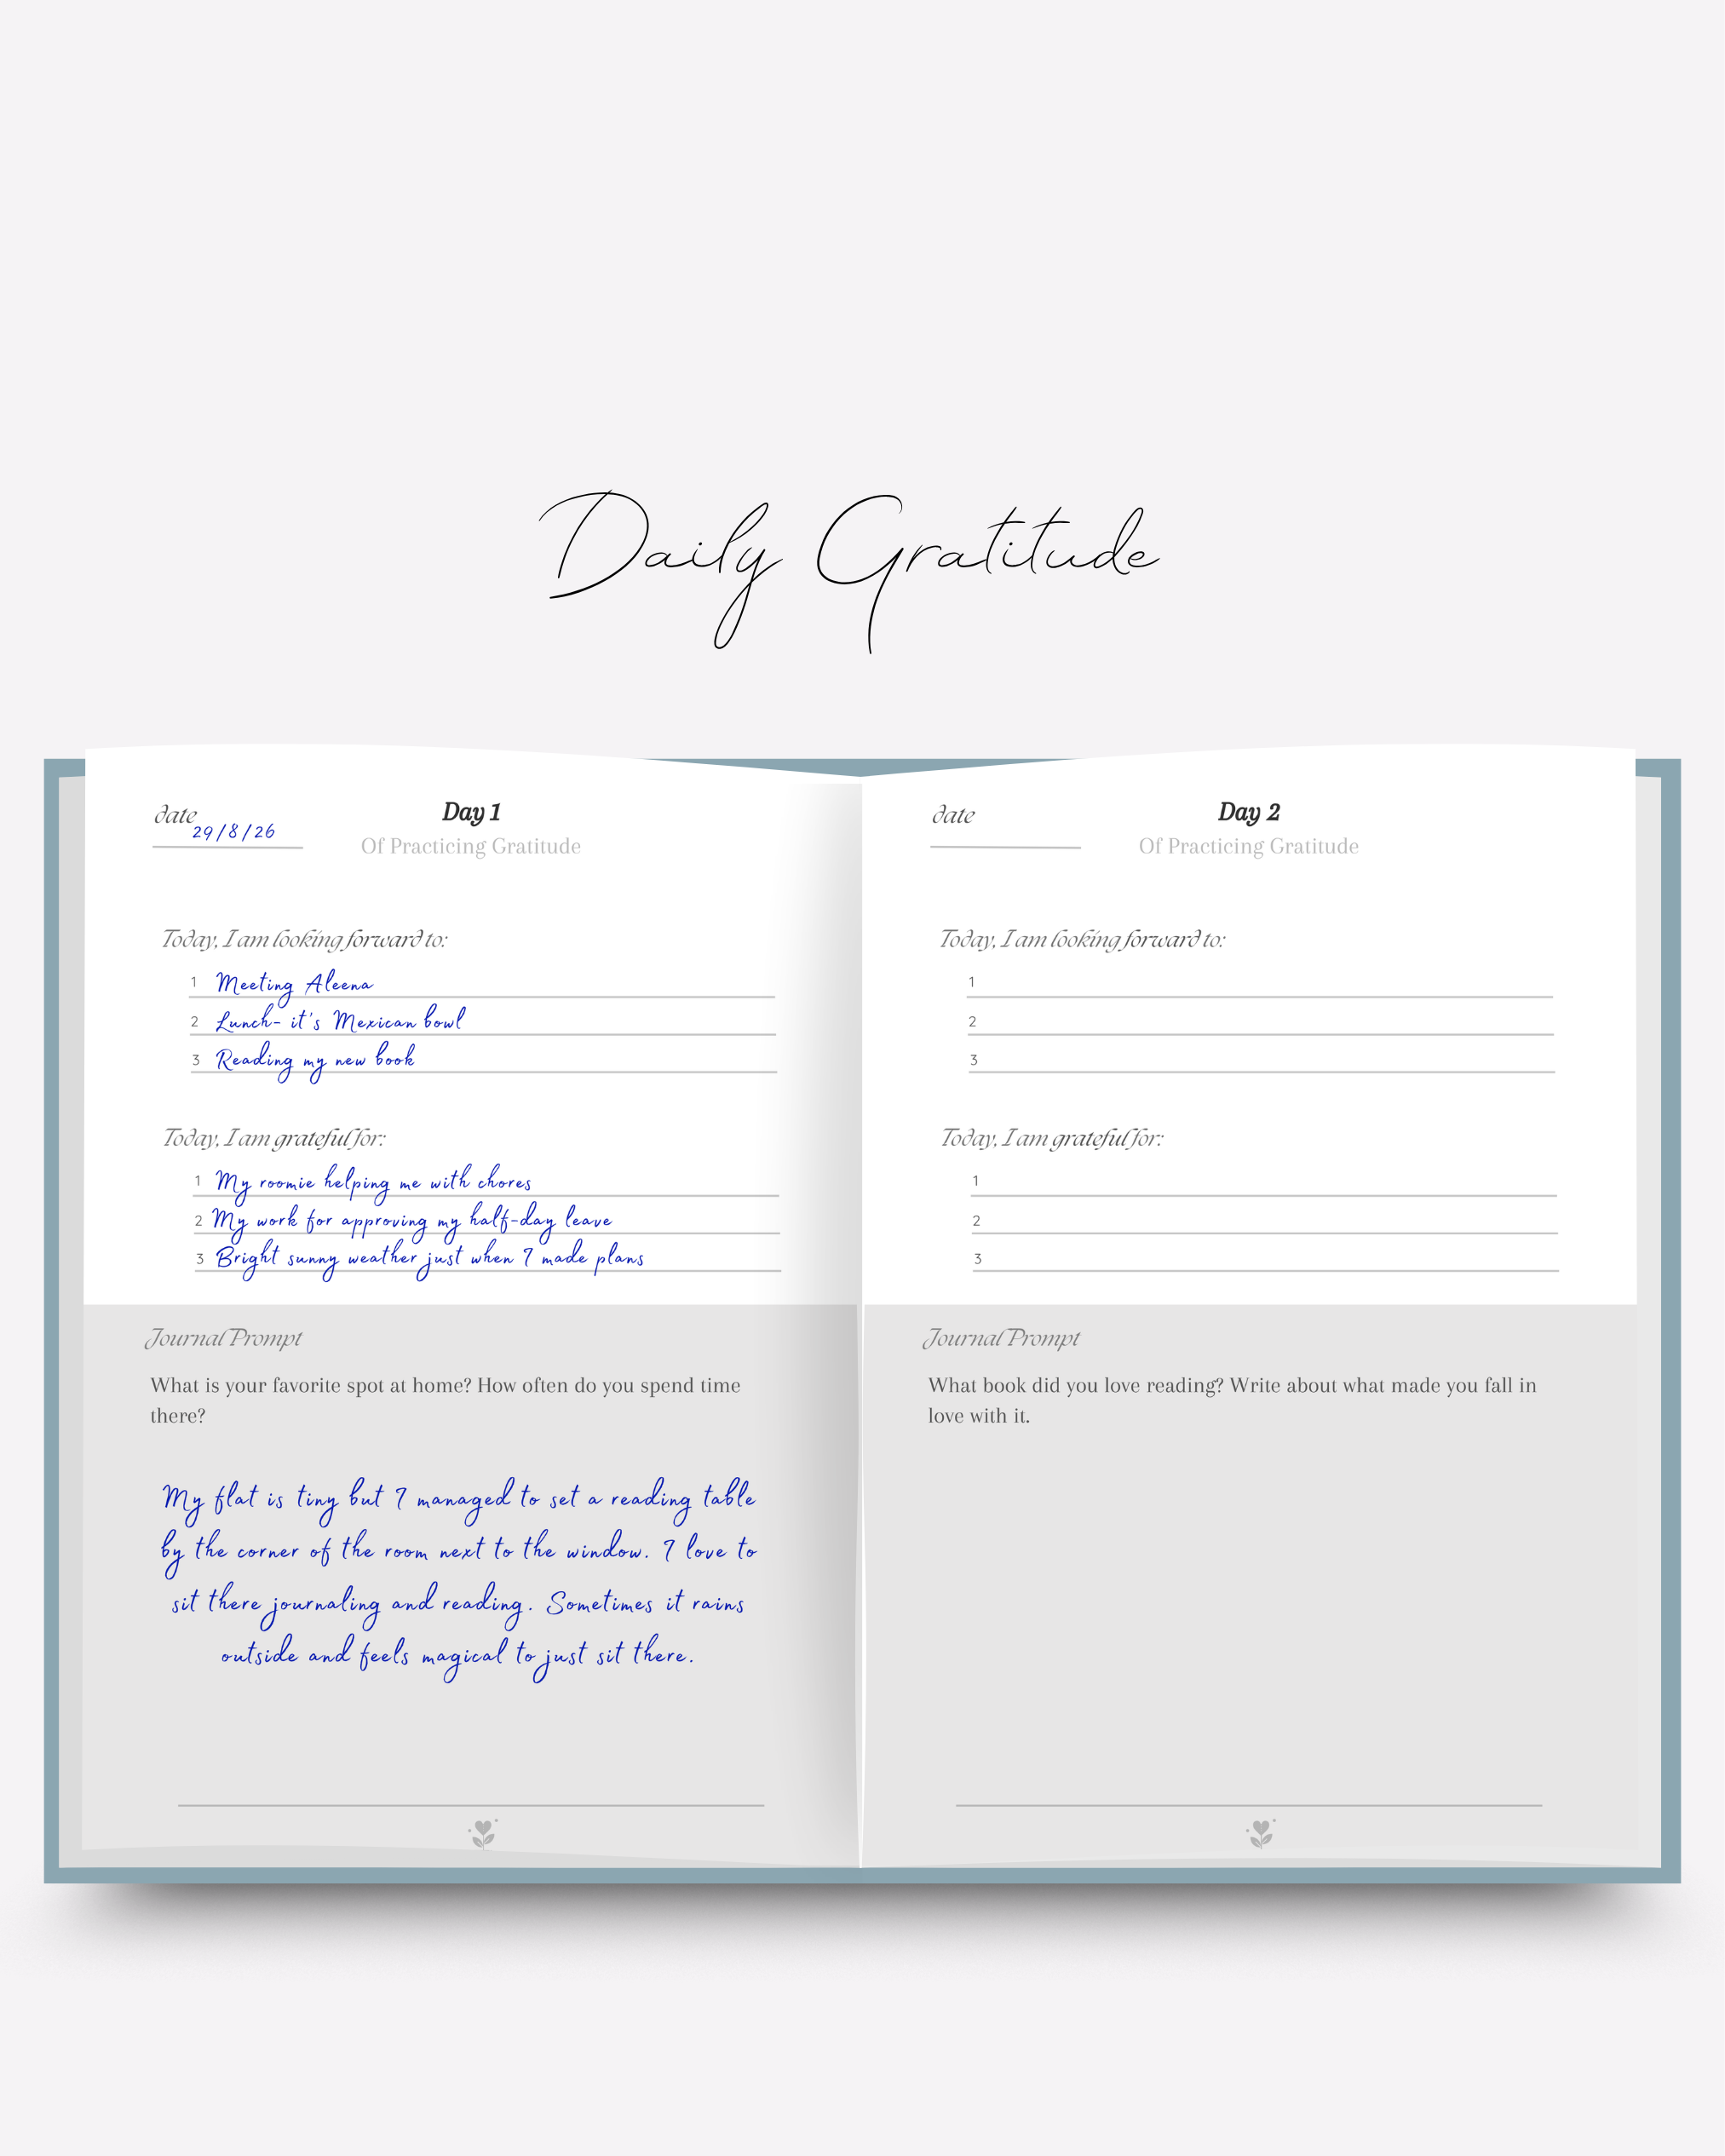 Daily Gratitude
date
29/8/26
Day 1
Of Practicing Gratitude
Today, I am looking forward to:
1 Meeting Aleena
2 Lunch- it's Mexican bowl
3 Reading my new book
Today, I am grateful for:
1 My roomie helping me with chores
2 My work for approving my half-day leave
3 Bright sunny weather just when I made plans
Journal Prompt
What is your favorite spot at home? How often do you spend time
there?
My flat is tiny but I managed to set a reading table
by the corner of the room next to the window. I love to
sit there journaling and reading. Sometimes it rains
outside and feels magical to just sit there.
date
Day 2
Of Practicing Gratitude
Today, I am looking forward to:
1
2
3
Today, I am grateful for:
1
2
3
Journal Prompt
What book did you love reading? Write about what made you fall in
love with it.